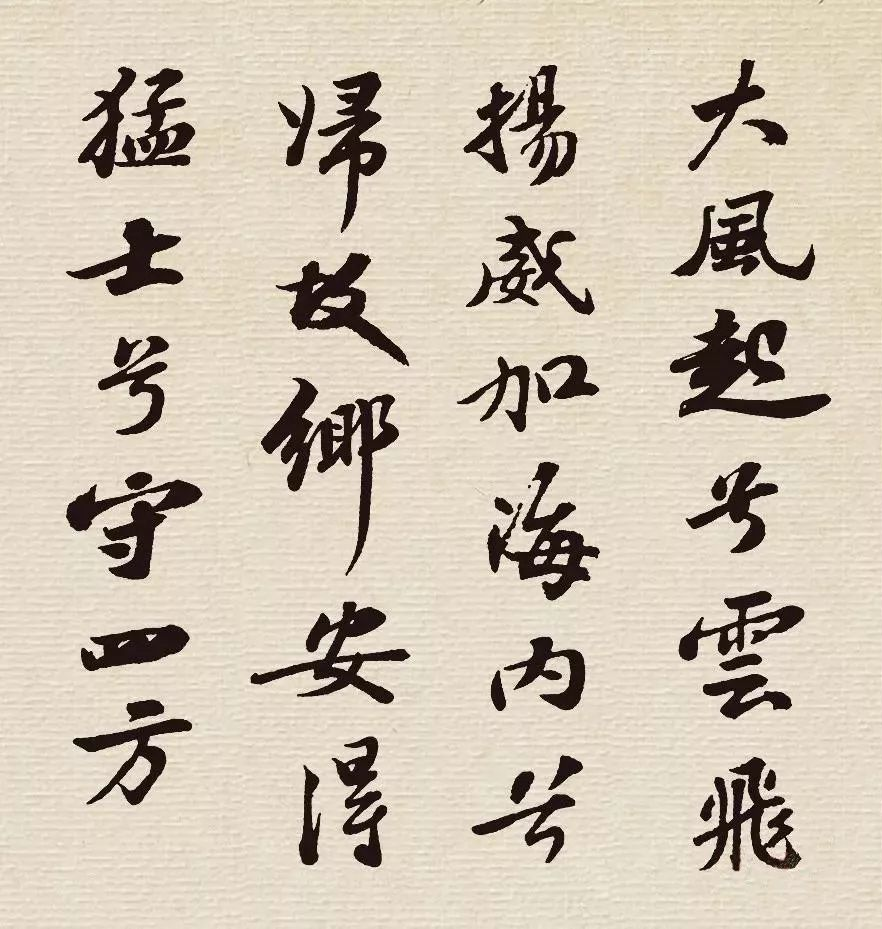 大風起兮雲飛
揚威加海内兮
歸故鄉安得
猛士兮守四方